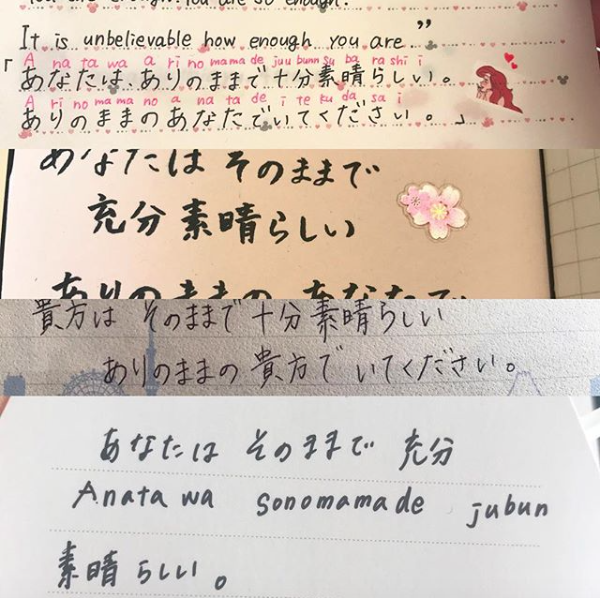 You are enough. You are so enough.
It is unbelievable how enough you are"
A na ta wa a ri no ma ma de juu bunn su ba ra shi i
「あなたは、ありのままで十分素晴らしい。
A ri no ma ma no a na ta de i te ku da sa i
ありのままのあなたでいてください。」
あなたは そのままで
充分 素晴らしい
ありのままの あなたで
貴方は そのままで 十分 素晴らしい
ありのままの 貴方で いてください。
あなたは そのままで 充分
Anata wa sonomama de jubun
素晴らしい。